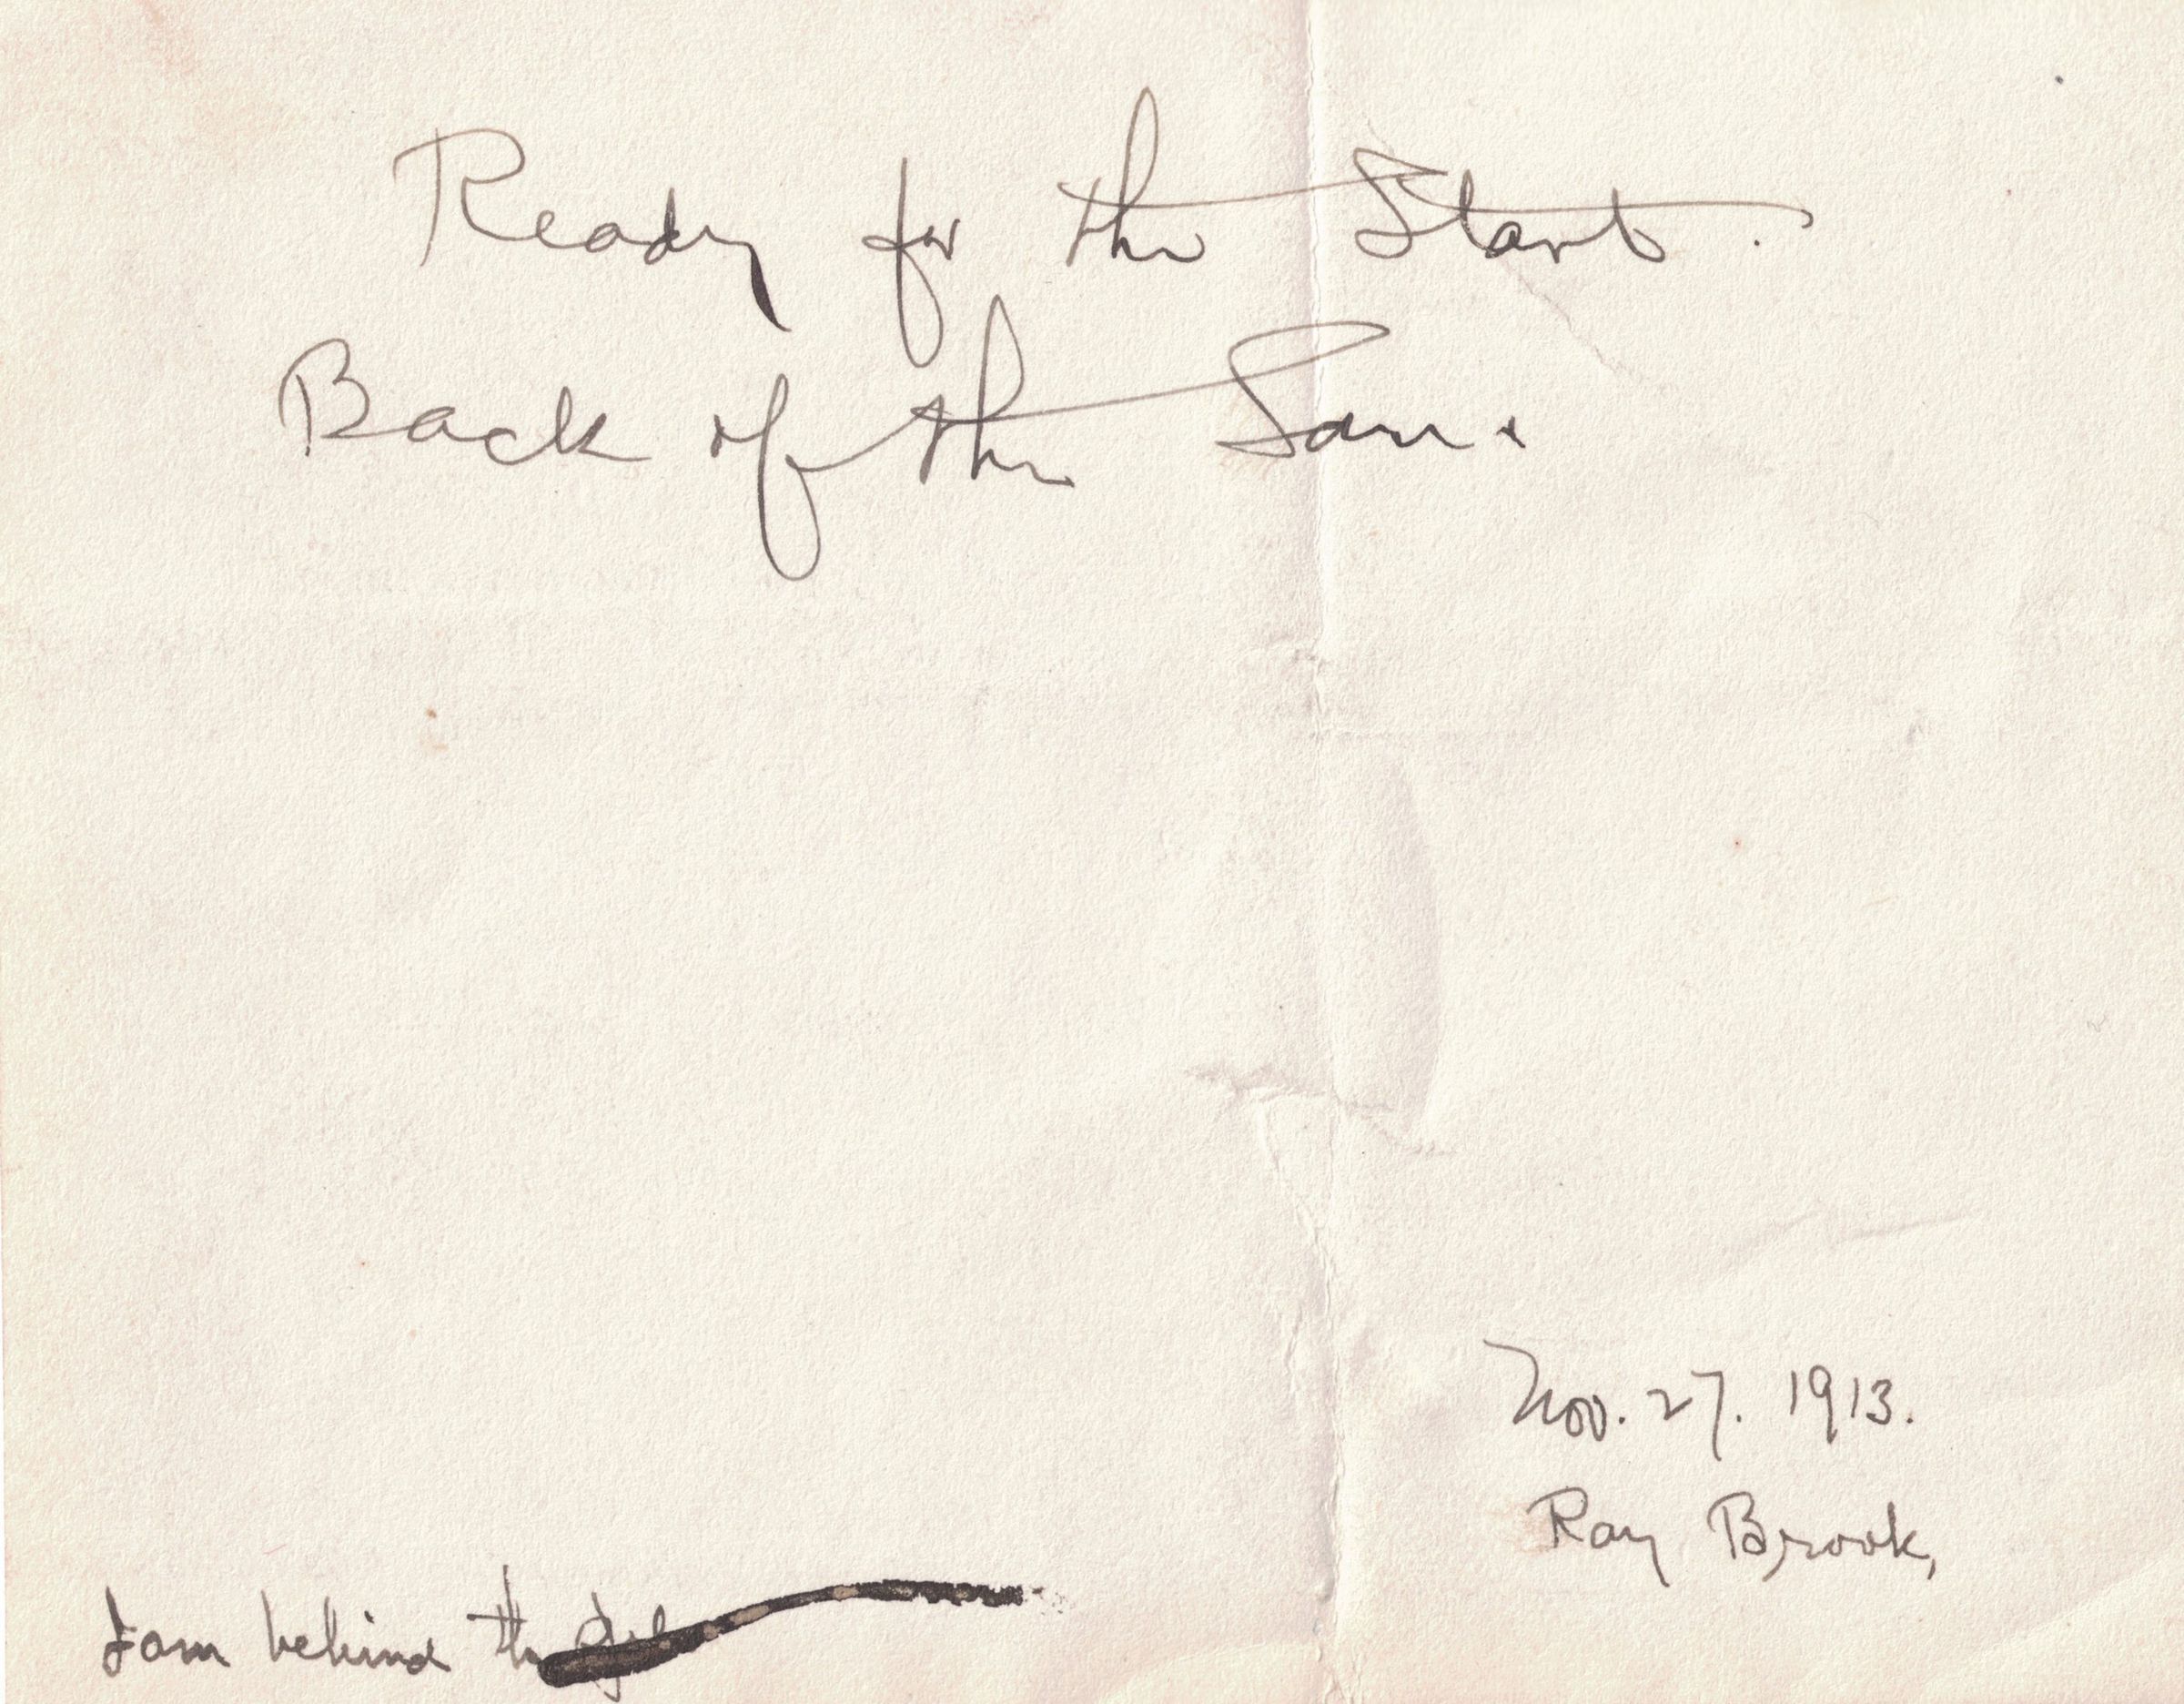 Ready for the Start.
Back of the San.
Nov. 27. 1913.
Ray Brook,
I am behind the